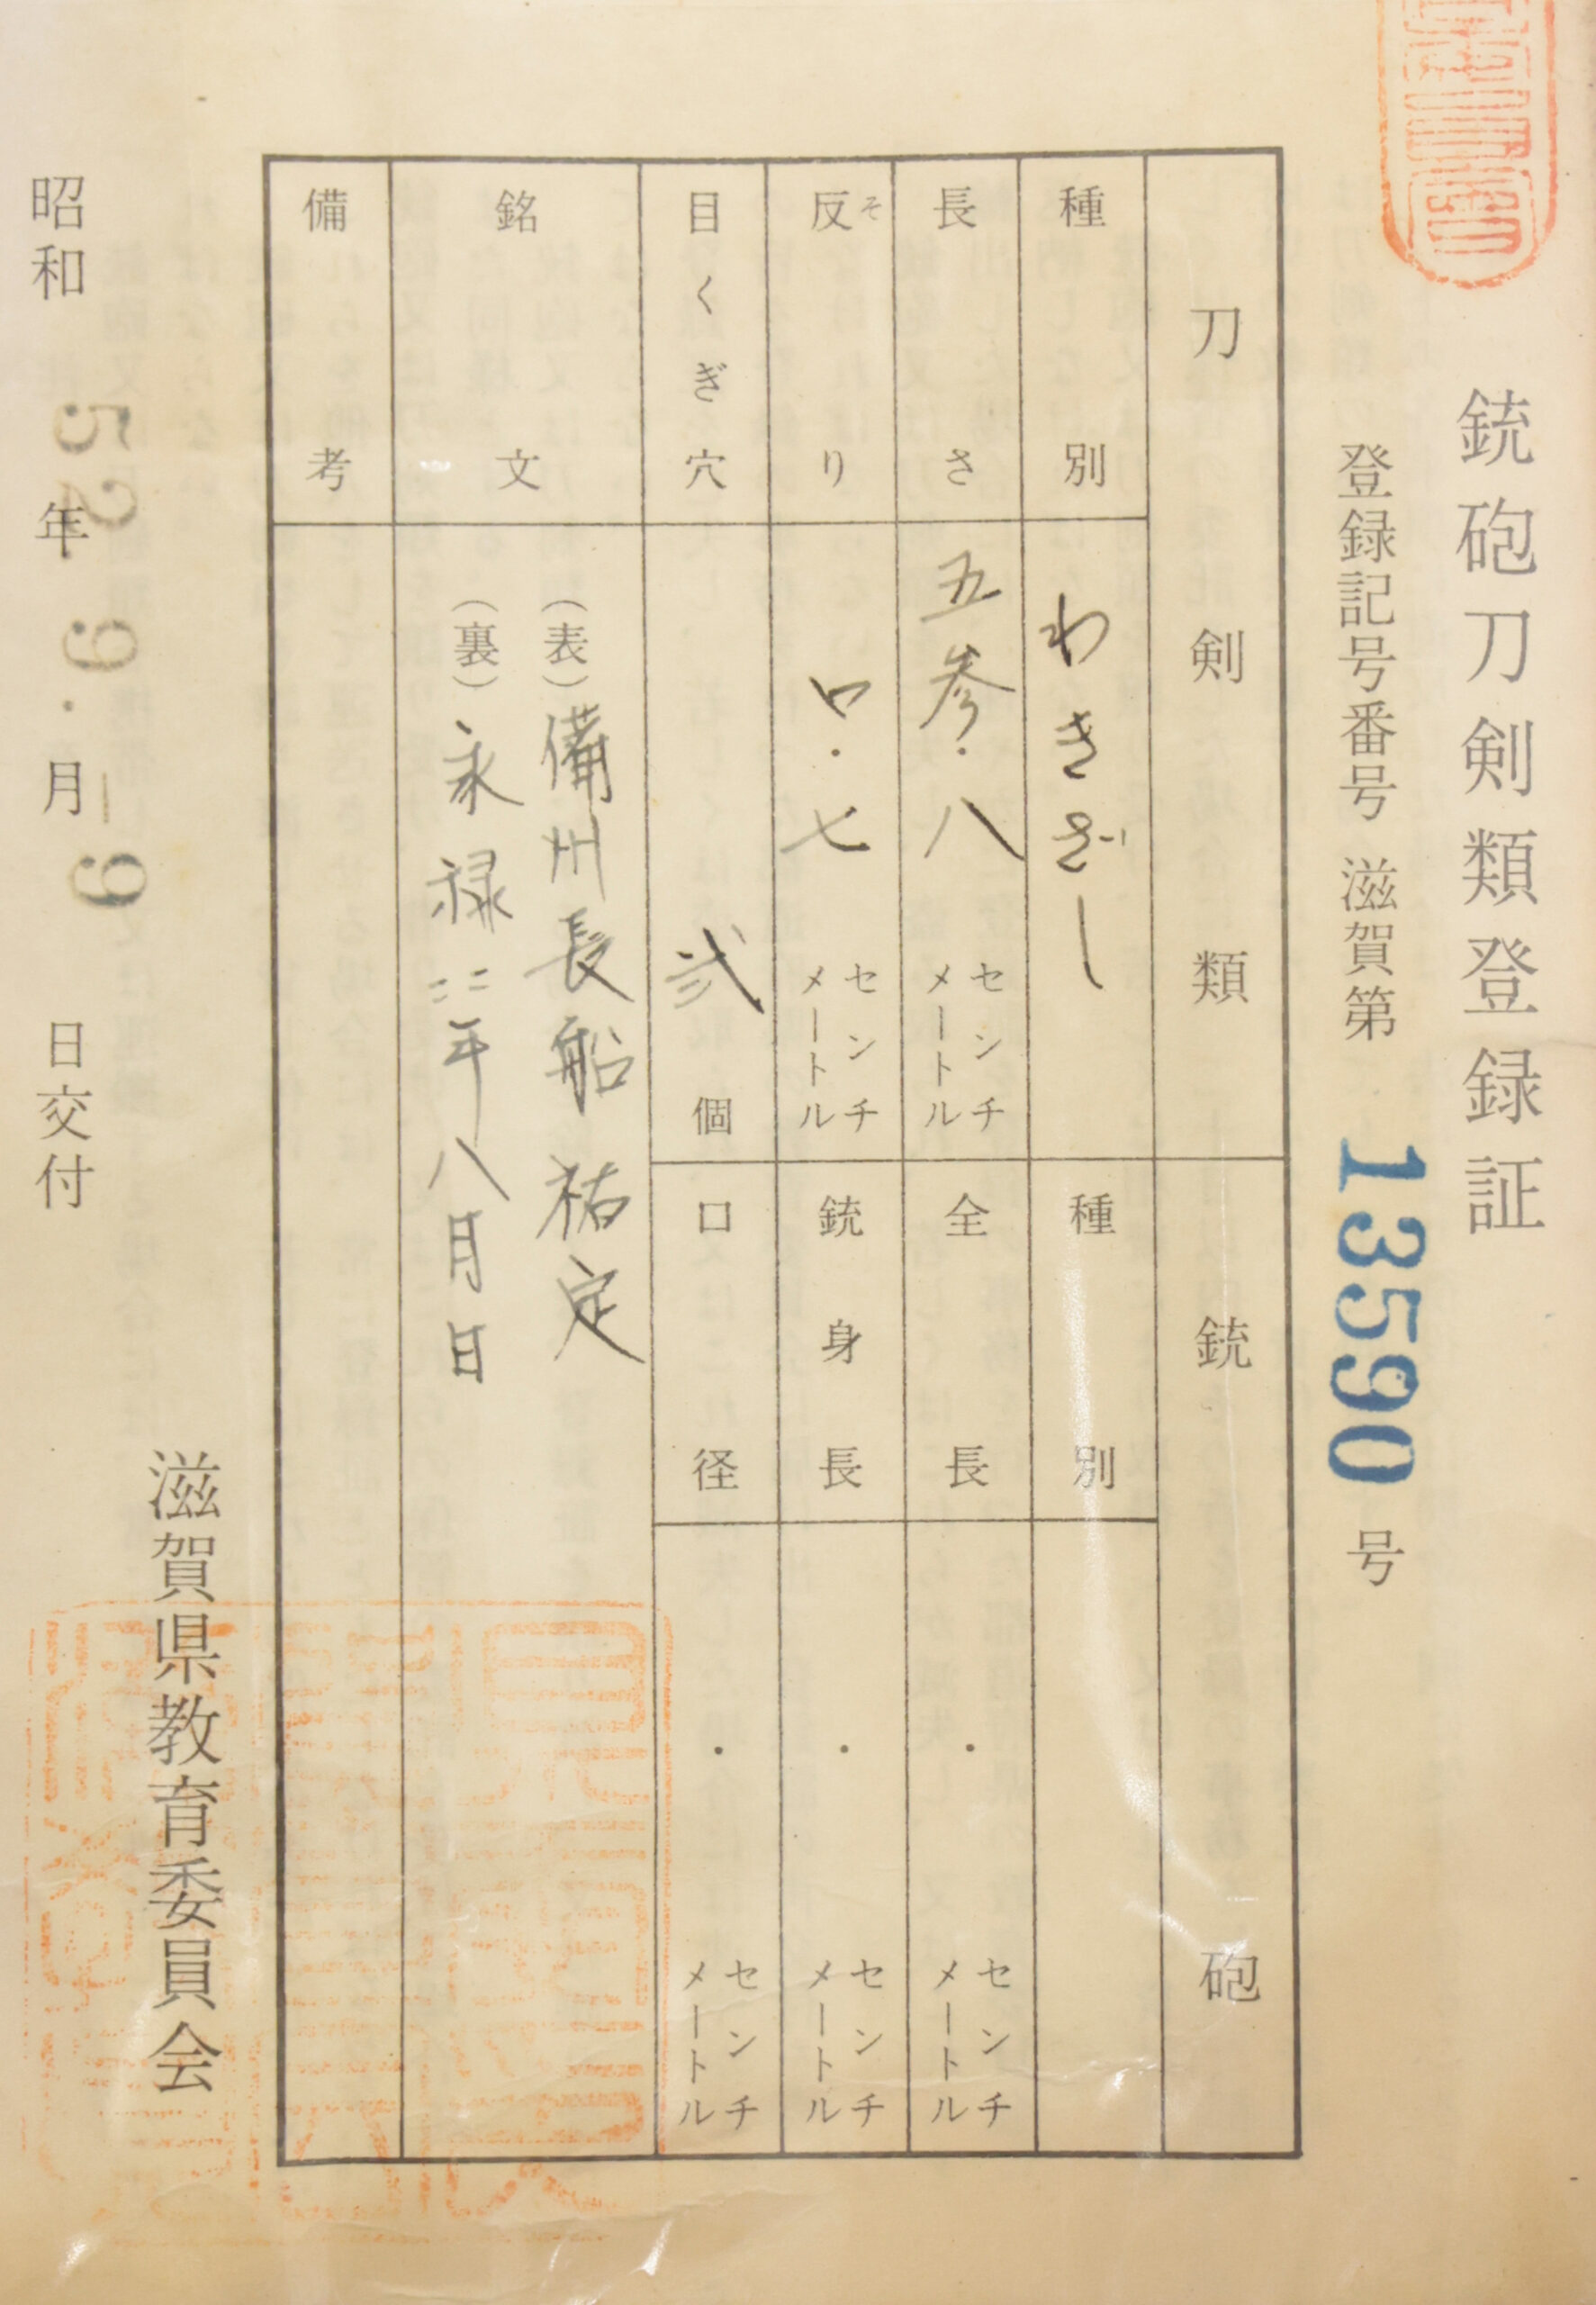 銃砲刀剣類登録証
登録記号番号 滋賀第 13590 号
刀剣類
種別 わきざし
長さ 五参.八 センチメートル
反り そ 〇.七 センチメートル
目くぎ穴 弐 個
銘文 (表)備州長船祐定
(裏)永禄二二年八月日
備考
銃砲
種別
全長 ・ センチメートル
銃身長 ・ センチメートル
口径 ・ センチメートル
昭和 52 年 9. 月 -9 日交付
滋賀県教育委員会